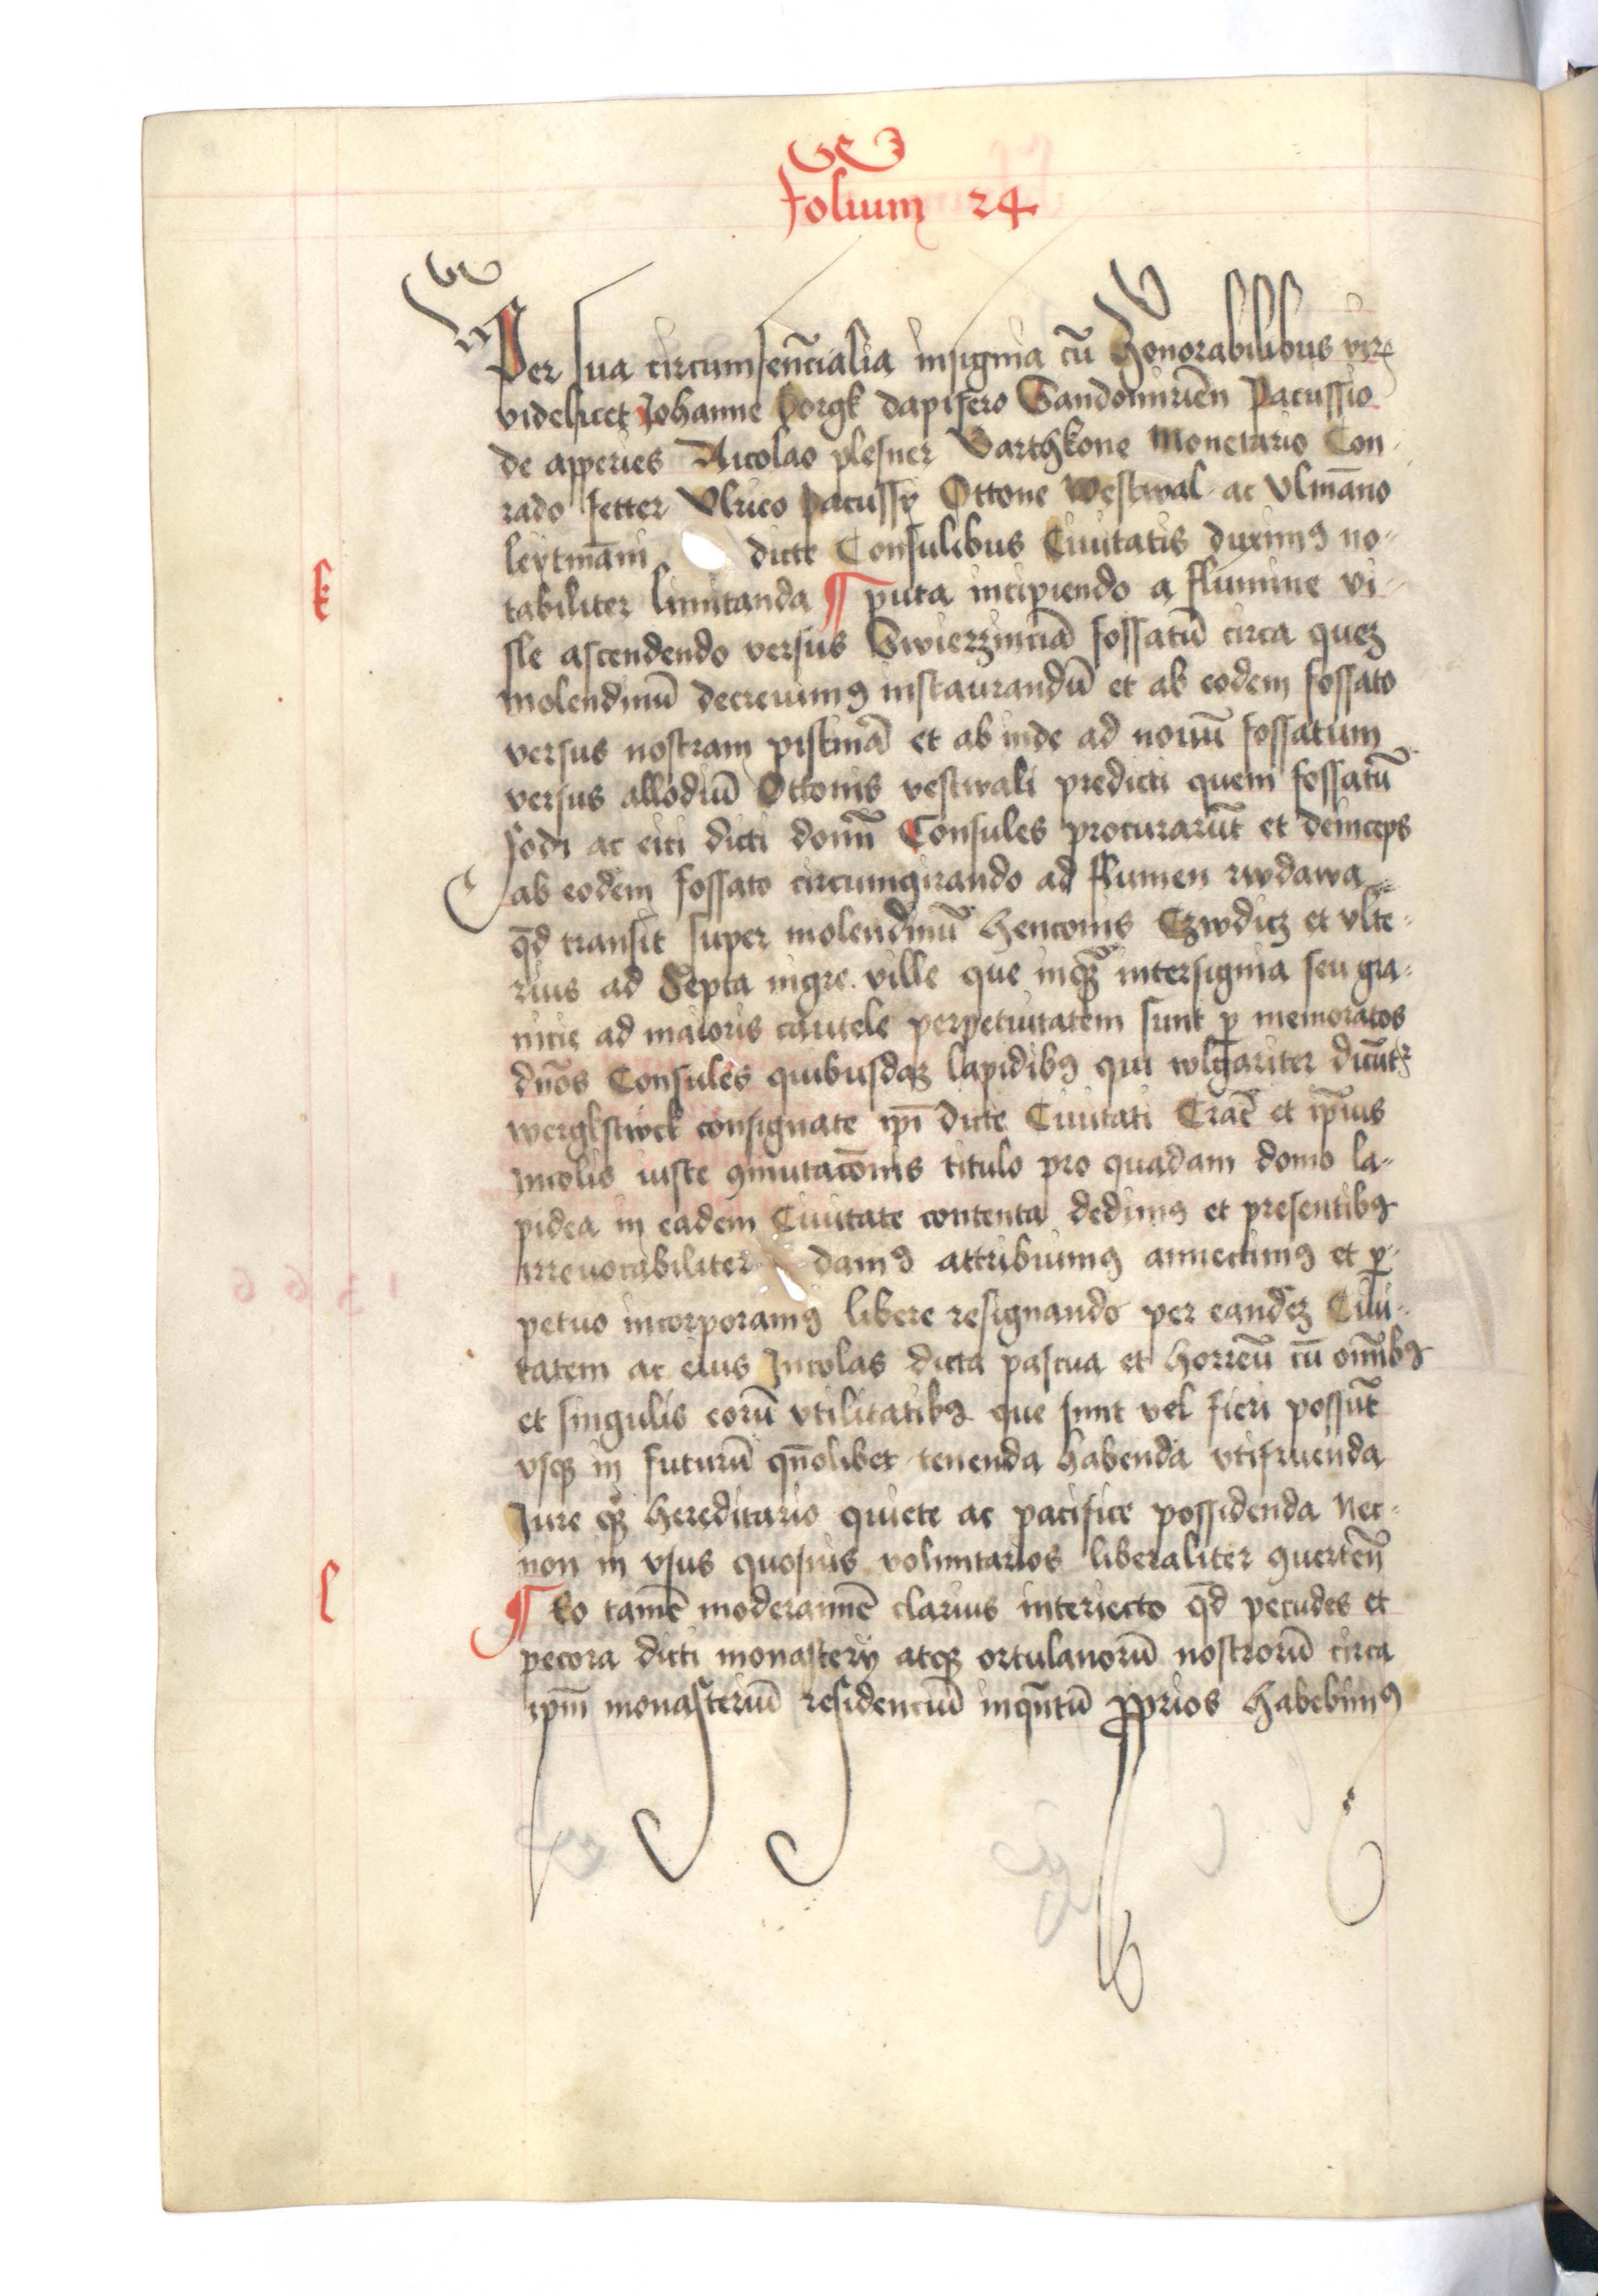 folium 24
Per sua circumsenc̄ialia insignia cū honorabilibus vir
videlicet Johanne borgk dapifero Sandomiriēn Pacussio
de apperies Nicolao plesner Barthkone Monetario Con-
rado Jetter Vlrico pacussy Ottone westwal ac Vlmāno
leytmāni dicte Consulibus Ciuitatis duximꝰ no-
k
tabiliter limitanda ¶ puta incipiendo a flumine vi-
sle ascendendo versus Swierzinciā fossatū circa quez
molendinū decreuimꝰ instaurandū et ab eodem fossato
versus nostram pistrinā et ab inde ad nouū fossatum
versus allodiū Ottonis vestwali predicti quem fossatū
fodi ac eici dicti domīn Consules procurarūt et deinceps
ab eodem fossato circumgirando ad flumen rwdawa
qd̄ transit super molendinū henconis Czwdicz et vlte-
rius ad Septa nigre ville que inqꝫ intersignia seu gra-
nicie ad maioris cautele perpetuitatem sunt ꝑ memoratos
dnōs Consules quibusdaz lapidibꝰ qui wlgariter dicūt
wergkstwck consignate ipī dicte Ciuitati Craē et ipīus
Incolis iuste ꝯmutacōnis titulo pro quadam domo la-
pidea in eadem Ciuitate contenta dedimꝰ et presentibꝰ
irreuocabiliter damꝰ attribuimꝰ annectimꝰ et ꝑ-
petuo incorporamꝰ libere resignando per eandez Ciui-
tatem ac eius Incolas dicta pascua et horreū cū om̄ibꝰ
et singulis eorū vtilitatibꝰ que sunt vel fieri possūt
vsqꝫ in futurū qn̄olibet tenenda habenda vtifruenda
Jure qꝫ hereditario quiete ac pacifice possidenda Nec-
non in vsus quosuis voluntarios liberaliter ꝯuertēn
l
¶ Eo tamē moderamē clarius interiecto qd̄ pecudes et
pecora dicti monastery atqꝫ ortulanorū nostrorū circa
ipm̄ monasteriū residenciū inqn̄tū ꝓprios habebimꝰ